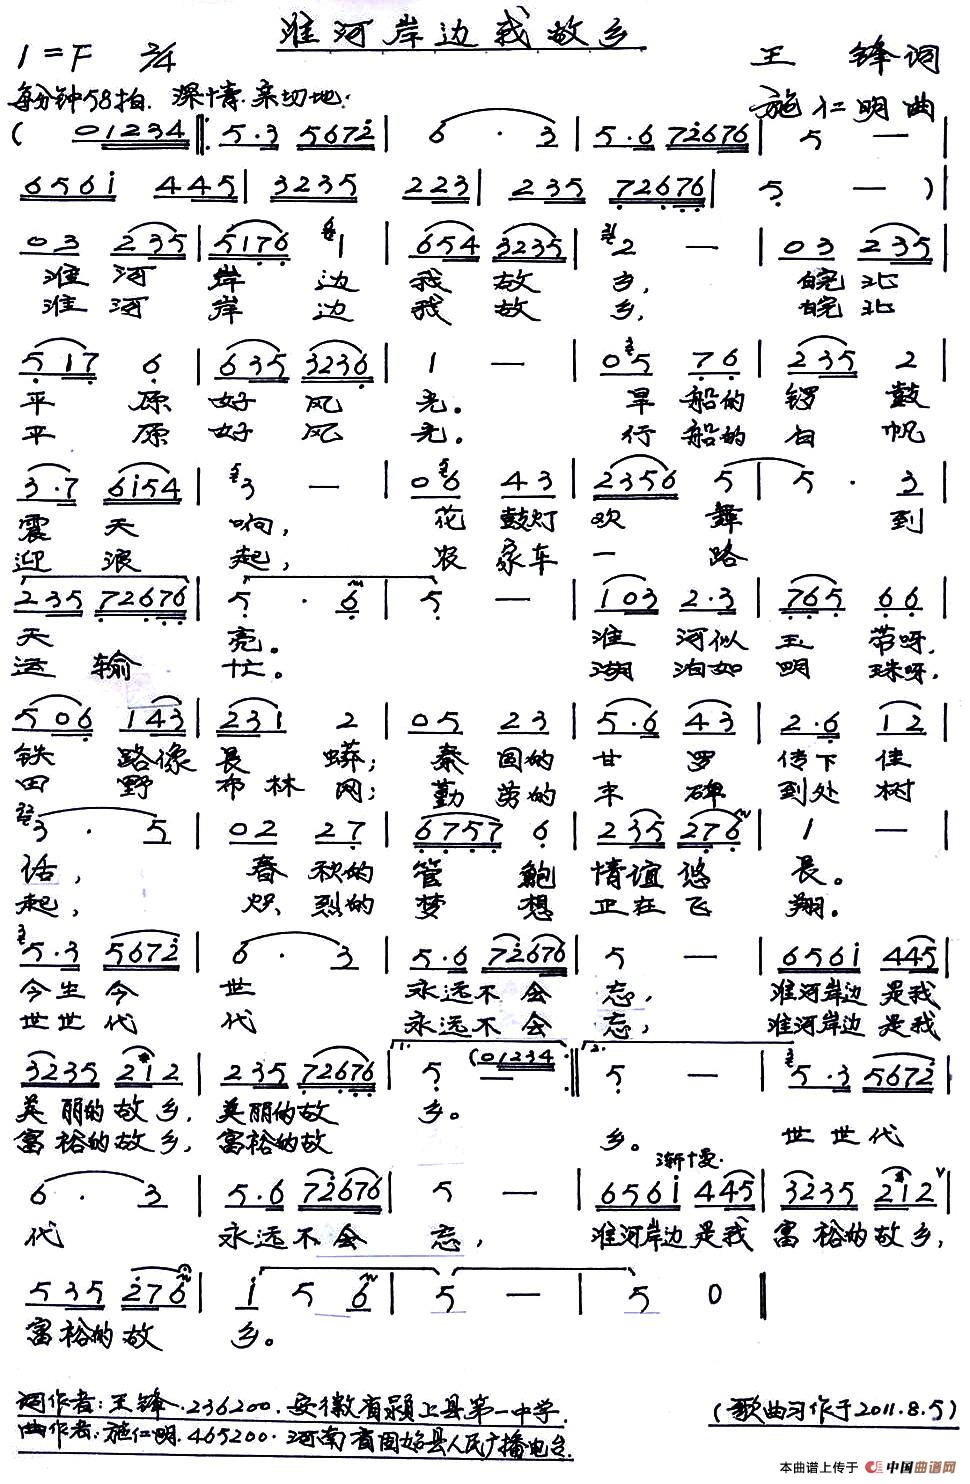 淮河岸边我故乡
1=F 2/4
王 锋词
每分钟58拍. 深情.亲切地.
施仁明曲
( 01234 ‖: 5·3 5672 | 6 · 3 | 5·6 72676 | 5 — |
6561 445 | 3235 223 | 235 72676 | 5 — ) |
03 235 | 5176 1 | 654 3235 | 2 — | 03 235 |
淮河 岸 边 我 故 乡, 皖北
淮河 岸 边 我 故 乡, 皖北
517 6 | 635 3236 | 1 — | 05 76 | 235 2 |
平 原 好 风 光。 旱船的 锣 鼓
平 原 好 风 光。 行船的 白 帆
3·7 6154 | 3 — | 06 43 | 2356 5 | 5 · 3 |
震 天 响, 花 鼓灯 欢 舞 到
迎 浪 起, 农 家车 一 路
235 72676 | 5 · 6 | 5 — | 103 2·3 | 765 66 |
天 亮。 淮 河似 玉 带呀,
运 输 忙。 湖 泊如 明 珠呀,
506 143 | 231 2 | 05 23 | 5·6 43 | 2·6 12 |
铁 路像 长 蟒; 秦 国的 甘 罗 传下 佳
田 野 布林 网; 勤 劳的 丰 碑 到处 树
3 · 5 | 02 27 | 6757 6 | 235 276 | 1 — |
话, 春 秋的 管 鲍 情谊 悠 长。
起, 炽 烈的 梦 想 正在 飞 翔。
5·3 5672 | 6 · 3 | 5·6 72676 | 5 — | 6561 445 |
今生今 世 永远不会 忘, 淮河岸边 是我
世世代 代 永远不会 忘, 淮河岸边 是我
3235 212 | 235 72676 | 1. 5 — (01234 :‖ 2. 5 — | 5·3 5672 |
美丽的故乡, 美丽的故 乡。
富裕的故乡, 富裕的故 乡。 世世代
渐慢.
6 · 3 | 5·6 72676 | 5 — | 6561 445 | 3235 212 |
代 永远不会 忘, 淮河岸边是我 富裕的故乡,
535 276 | 1 5 6 | 5 — | 5 0 ‖
富裕的故 乡。
词作者:王锋.236200.安徽省颍上县第一中学.
(歌曲习作于2011.8.5)
曲作者:施仁明.465200.河南省固始县人民广播电台.
本曲谱上传于 中国曲谱网